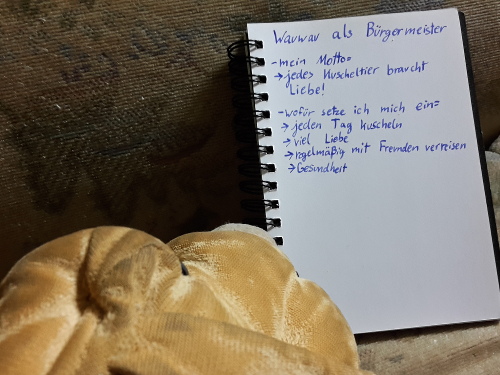 Wauwau als Bürgermeister
-mein Motto=
→jedes Kuscheltier braucht
Liebe!
-wofür setze ich mich ein=
→jeden Tag kuscheln
→viel Liebe
→regelmäßig mit Fremden verreisen
→Gesundheit